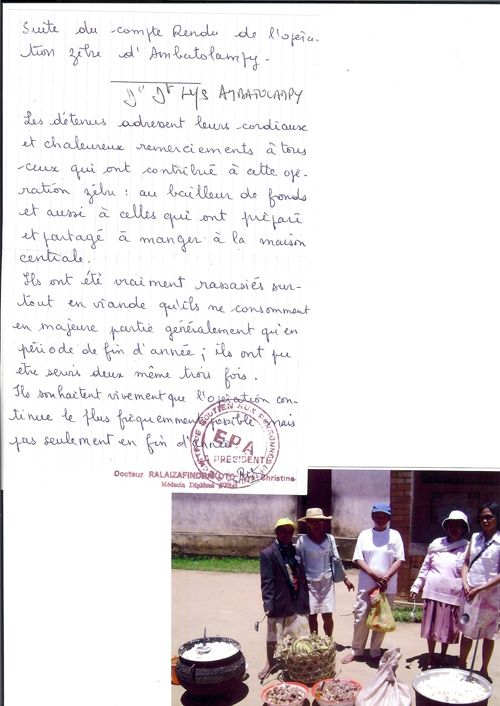 Suite du compte Rendu de l'opéra-
tion zébu d'Ambatolampy.
LYS AMBATOLAMPY
Les détenus adressent leurs cordiaux
et chaleureux remerciements à tous
ceux qui ont contribué à cette opé-
ration zébu : au bailleur de fonds
et aussi à celles qui ont préparé
et partagé à manger à la maison
centrale.
Ils ont été vraiment rassasiés sur-
tout en viande qu'ils ne consomment
en majeure partie généralement qu'en
période de fin d'année ; ils ont pu
être servis deux même trois fois.
Ils souhaitent vivement que l'opération con-
tinue le plus fréquemment possible mais
pas seulement en fin d'année.
SOUTIEN AUX
EPA
LA PRESIDENTE
Docteur RALAIZAFINDRAKOTO Christine
Médecin Diplômé d'Etat